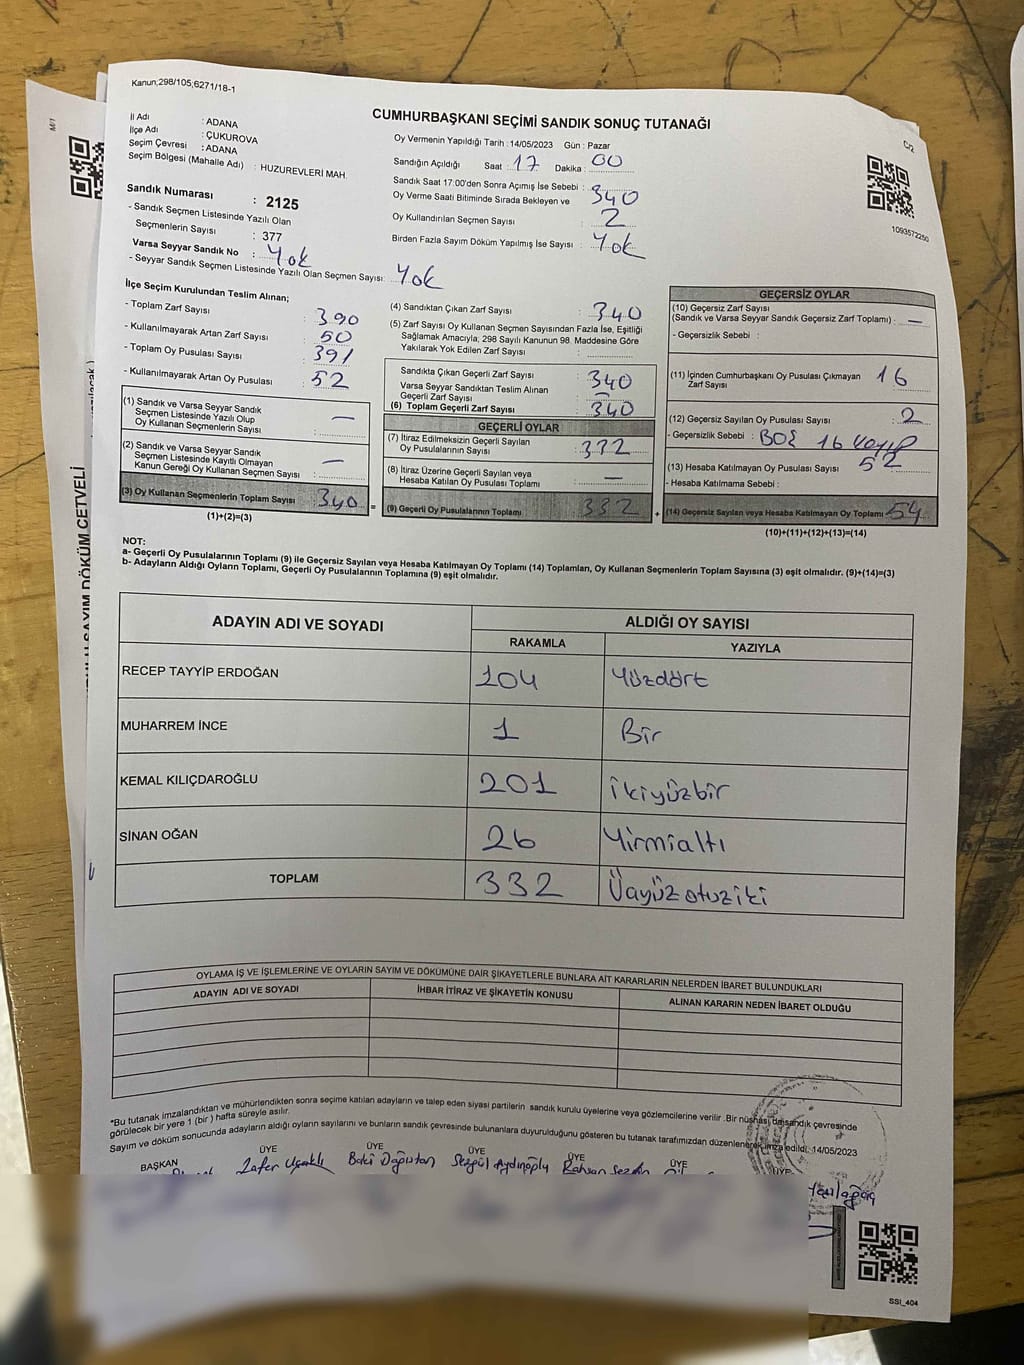 Kanun;298/105;6271/18-1
CUMHURBAŞKANI SEÇİMİ SANDIK SONUÇ TUTANAĞI
M/1
C/2
İl Adı : ADANA
İlçe Adı : ÇUKUROVA
Seçim Çevresi : ADANA
Seçim Bölgesi (Mahalle Adı) : HUZUREVLERİ MAH.
Sandık Numarası : 2125
- Sandık Seçmen Listesinde Yazılı Olan
Seçmenlerin Sayısı : 377
Varsa Seyyar Sandık No : Yok
- Seyyar Sandık Seçmen Listesinde Yazılı Olan Seçmen Sayısı: Yok
Oy Vermenin Yapıldığı Tarih : 14/05/2023 Gün : Pazar
Sandığın Açıldığı Saat : 17 Dakika : 00
Sandık Saat 17:00'den Sonra Açımış İse Sebebi :
Oy Verme Saati Bitiminde Sırada Bekleyen ve 340
Oy Kullandırılan Seçmen Sayısı : 2
Birden Fazla Sayım Döküm Yapılmış İse Sayısı : Yok
1093572250
İlçe Seçim Kurulundan Teslim Alınan;
- Toplam Zarf Sayısı : 390
- Kullanılmayarak Artan Zarf Sayısı : 50
- Toplam Oy Pusulası Sayısı : 391
- Kullanılmayarak Artan Oy Pusulası : 52
(1) Sandık ve Varsa Seyyar Sandık
Seçmen Listesinde Yazılı Olup
Oy Kullanan Seçmenlerin Sayısı : —
(2) Sandık ve Varsa Seyyar Sandık
Seçmen Listesinde Kayıtlı Olmayan
Kanun Gereği Oy Kullanan Seçmen Sayısı : —
(3) Oy Kullanan Seçmenlerin Toplam Sayısı : 340 =
(1)+(2)=(3)
(4) Sandıktan Çıkan Zarf Sayısı : 340
(5) Zarf Sayısı Oy Kullanan Seçmen Sayısından Fazla İse, Eşitliği
Sağlamak Amacıyla, 298 Sayılı Kanunun 98. Maddesine Göre
Yakılarak Yok Edilen Zarf Sayısı :
Sandıkta Çıkan Geçerli Zarf Sayısı : 340
Varsa Seyyar Sandıktan Teslim Alınan
Geçerli Zarf Sayısı : —
(6) Toplam Geçerli Zarf Sayısı : 340
GEÇERLİ OYLAR
(7) İtiraz Edilmeksizin Geçerli Sayılan
Oy Pusulalarının Sayısı : 332
(8) İtiraz Üzerine Geçerli Sayılan veya
Hesaba Katılan Oy Pusulası Toplamı : —
(9) Geçerli Oy Pusulalarının Toplamı : 332 +
GEÇERSİZ OYLAR
(10) Geçersiz Zarf Sayısı
(Sandık ve Varsa Seyyar Sandık Geçersiz Zarf Toplamı) : —
- Geçersizlik Sebebi :
(11) İçinden Cumhurbaşkanı Oy Pusulası Çıkmayan
Zarf Sayısı : 16
(12) Geçersiz Sayılan Oy Pusulası Sayısı : 2
- Geçersizlik Sebebi : BOŞ 16 kayıp
(13) Hesaba Katılmayan Oy Pusulası Sayısı : 52
- Hesaba Katılmama Sebebi :
(14) Geçersiz Sayılan veya Hesaba Katılmayan Oy Toplamı : 54
(10)+(11)+(12)+(13)=(14)
NOT:
a- Geçerli Oy Pusulalarının Toplamı (9) ile Geçersiz Sayılan veya Hesaba Katılmayan Oy Toplamı (14) Toplamları, Oy Kullanan Seçmenlerin Toplam Sayısına (3) eşit olmalıdır. (9)+(14)=(3)
b- Adayların Aldığı Oyların Toplamı, Geçerli Oy Pusulalarının Toplamına (9) eşit olmalıdır.
ADAYIN ADI VE SOYADI ALDIĞI OY SAYISI
RAKAMLA YAZIYLA
RECEP TAYYİP ERDOĞAN 104 Yüzdört
MUHARREM İNCE 1 Bir
KEMAL KILIÇDAROĞLU 201 ikiyüzbir
SİNAN OĞAN 26 Yirmialtı
TOPLAM 332 Üçyüzotuziki
OYLAMA İŞ VE İŞLEMLERİNE VE OYLARIN SAYIM VE DÖKÜMÜNE DAİR ŞİKAYETLERLE BUNLARA AİT KARARLARIN NELERDEN İBARET BULUNDUKLARI
ADAYIN ADI VE SOYADI İHBAR İTİRAZ VE ŞİKAYETİN KONUSU ALINAN KARARIN NEDEN İBARET OLDUĞU
*Bu tutanak imzalandıktan ve mühürlendikten sonra seçime katılan adayların ve talep eden siyasi partilerin sandık kurulu üyelerine veya gözlemcilerine verilir .Bir nüshası da sandık çevresinde
görülecek bir yere 1 (bir ) hafta süreyle asılır.
Sayım ve döküm sonucunda adayların aldığı oyların sayılarını ve bunların sandık çevresinde bulunanlara duyurulduğunu gösteren bu tutanak tarafımızdan düzenlenerek imza edildi. 14/05/2023
BAŞKAN ÜYE ÜYE ÜYE ÜYE ÜYE ÜYE
Zafer Uşaklı
SAYIM DÖKÜM CETVELİ
SSI_404